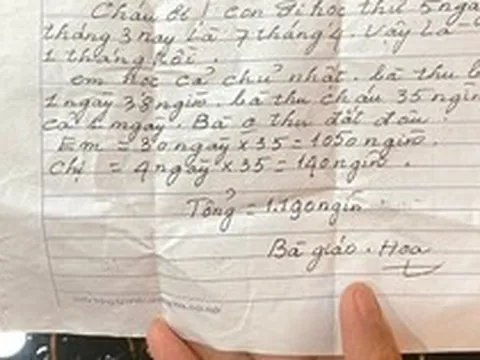 Cháu ơi! con đi học thứ 5 ngày
tháng 3 nay là 7 tháng 4. Vậy là
1 tháng rồi.
em học cả chủ nhật. bà thu
1 ngày 38 nghìn. bà thu cháu 35 nghìn
cả ngày. Bà o thu đắt đâu
Em = 30 ngày x 35 = 1050 nghìn.
chị = 4 ngày x 35 = 140 nghìn.
Tổng = 1.190 nghìn.
Bà giáo. Hoa